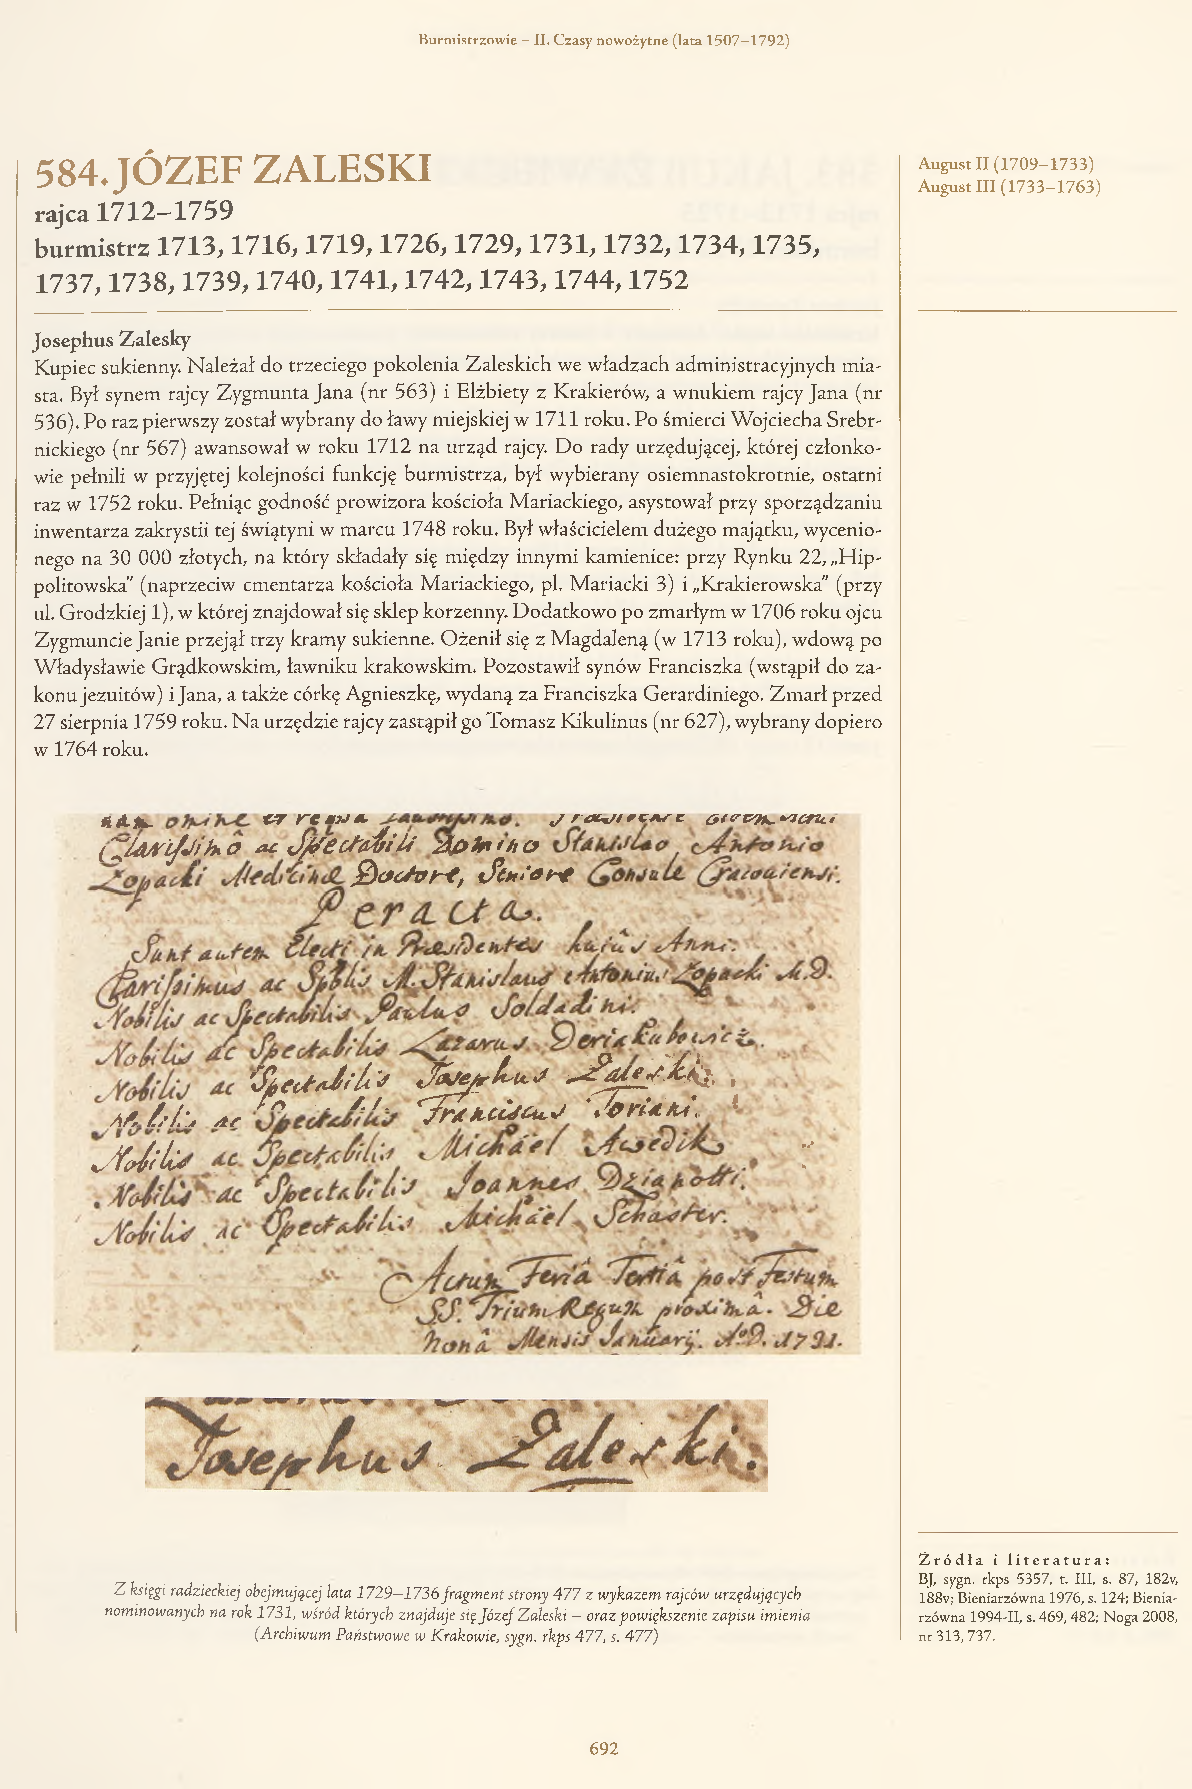 Burmistrzowie – II. Czasy nowożytne (lata 1507–1792)
584. JÓZEF ZALESKI
rajca 1712–1759
burmistrz 1713, 1716, 1719, 1726, 1729, 1731, 1732, 1734, 1735,
1737, 1738, 1739, 1740, 1741, 1742, 1743, 1744, 1752
August II (1709–1733)
August III (1733–1763)
Josephus Zalesky
Kupiec sukienny. Należał do trzeciego pokolenia Zaleskich we władzach administracyjnych mia-
sta. Był synem rajcy Zygmunta Jana (nr 563) i Elżbiety z Krakierów, a wnukiem rajcy Jana (nr
536). Po raz pierwszy został wybrany do ławy miejskiej w 1711 roku. Po śmierci Wojciecha Srebr-
nickiego (nr 567) awansował w roku 1712 na urząd rajcy. Do rady urzędującej, której członko-
wie pełnili w przyjętej kolejności funkcję burmistrza, był wybierany osiemnastokrotnie, ostatni
raz w 1752 roku. Pełniąc godność prowizora kościoła Mariackiego, asystował przy sporządzaniu
inwentarza zakrystii tej świątyni w marcu 1748 roku. Był właścicielem dużego majątku, wycenio-
nego na 30 000 złotych, na który składały się między innymi kamienice: przy Rynku 22, „Hip-
politowska” (naprzeciw cmentarza kościoła Mariackiego, pl. Mariacki 3) i „Krakierowska” (przy
ul. Grodzkiej 1), w której znajdował się sklep korzenny. Dodatkowo po zmarłym w 1706 roku ojcu
Zygmuncie Janie przejął trzy kramy sukienne. Ożenił się z Magdaleną (w 1713 roku), wdową po
Władysławie Grądkowskim, ławniku krakowskim. Pozostawił synów Franciszka (wstąpił do za-
konu jezuitów) i Jana, a także córkę Agnieszkę, wydaną za Franciszka Gerardiniego. Zmarł przed
27 sierpnia 1759 roku. Na urzędzie rajcy zastąpił go Tomasz Kikulinus (nr 627), wybrany dopiero
w 1764 roku.
Clarissimo ac Spectabili Domino Stanislao Antonio
Łopacki Medicinæ Doctore, Seniore Consule Cracoviensi.
Peracta.
Sunt autem Electi in Præsidentes hujus Anni.
Clarissimus ac Spblis M. Stanislaus Antonius Łopacki M.D.
Nobilis ac Spectabilis Paulus Soldadini.
Nobilis ac Spectabilis Lazarus Deriakubowicz.
Nobilis ac Spectabilis Josephus Zaleski.
Nobilis ac Spectabilis Franciscus Toriani.
Nobilis ac Spectabilis Michael Awedik
Nobilis ac Spectabilis Joannes Dzianotti.
Nobilis ac Spectabilis Michael Schaster.
Actum Feria Tertia post Festum
SS. Trium Regum proxima. Die
nona Mensis Januarij. A.D. 1731.
Josephus Zaleski.
Z księgi radzieckiej obejmującej lata 1729–1736 fragment strony 477 z wykazem rajców urzędujących
nominowanych na rok 1731, wśród których znajduje się Józef Zaleski – oraz powiększenie zapisu imienia
(Archiwum Państwowe w Krakowie, sygn. rkps 477, s. 477)
Źródła i literatura:
BJ, sygn. rkps 5357, t. III, s. 87, 182v,
188v; Bieniarzówna 1976, s. 124; Bienia-
rzówna 1994-II, s. 469, 482; Noga 2008,
nr 313, 737.
692